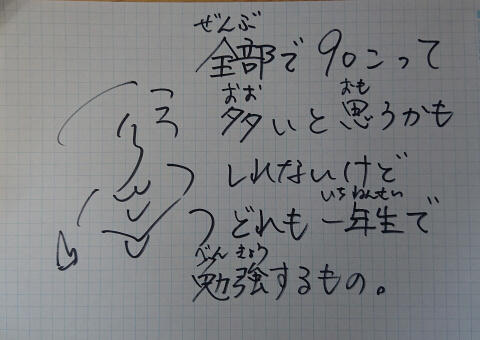 ぜんぶ
全部で90こって
おお おも
多いと思うかも
しれないけど
いちねんせい
どれも一年生で
べんきょう
勉強するもの。